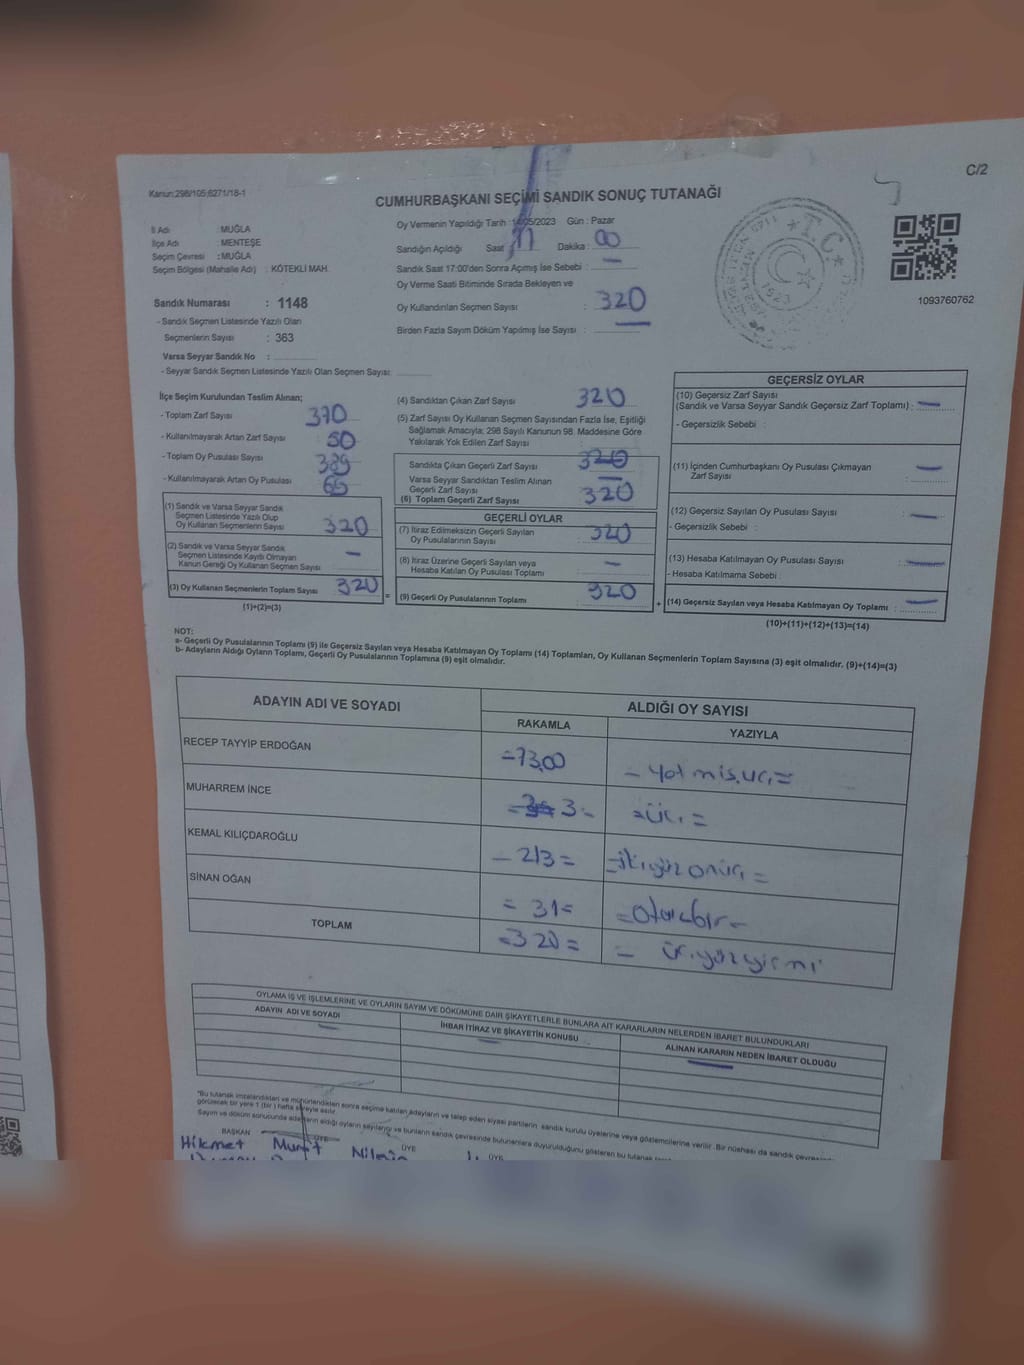 C/2
Kanun:298/105;6271/18-1
CUMHURBAŞKANI SEÇİMİ SANDIK SONUÇ TUTANAĞI
İl Adı : MUĞLA
İlçe Adı : MENTEŞE
Seçim Çevresi : MUĞLA
Seçim Bölgesi (Mahalle Adı) : KÖTEKLİ MAH.
Sandık Numarası : 1148
- Sandık Seçmen Listesinde Yazılı Olan
Seçmenlerin Sayısı : 363
Varsa Seyyar Sandık No :
- Seyyar Sandık Seçmen Listesinde Yazılı Olan Seçmen Sayısı:
Oy Vermenin Yapıldığı Tarih : 14/05/2023 Gün : Pazar
Sandığın Açıldığı Saat : 17 Dakika : 00
Sandık Saat 17:00'den Sonra Açımış İse Sebebi :
Oy Verme Saati Bitiminde Sırada Bekleyen ve
Oy Kullandırılan Seçmen Sayısı : 320
Birden Fazla Sayım Döküm Yapılmış İse Sayısı :
T.C.
1923
1093760762
İlçe Seçim Kurulundan Teslim Alınan;
- Toplam Zarf Sayısı 370
- Kullanılmayarak Artan Zarf Sayısı 50
- Toplam Oy Pusulası Sayısı 389
- Kullanılmayarak Artan Oy Pusulası
(1) Sandık ve Varsa Seyyar Sandık
Seçmen Listesinde Yazılı Olup
Oy Kullanan Seçmenlerin Sayısı 320
(2) Sandık ve Varsa Seyyar Sandık
Seçmen Listesinde Kayıtlı Olmayan
Kanun Gereği Oy Kullanan Seçmen Sayısı -
(3) Oy Kullanan Seçmenlerin Toplam Sayısı 320
(1)+(2)=(3)
=
(4) Sandıktan Çıkan Zarf Sayısı 320
(5) Zarf Sayısı Oy Kullanan Seçmen Sayısından Fazla İse, Eşitliği
Sağlamak Amacıyla; 298 Sayılı Kanunun 98. Maddesine Göre
Yakılarak Yok Edilen Zarf Sayısı :
Sandıkta Çıkan Geçerli Zarf Sayısı 320
Varsa Seyyar Sandıktan Teslim Alınan
Geçerli Zarf Sayısı -
(6) Toplam Geçerli Zarf Sayısı 320
GEÇERLİ OYLAR
(7) İtiraz Edilmeksizin Geçerli Sayılan
Oy Pusulalarının Sayısı 320
(8) İtiraz Üzerine Geçerli Sayılan veya
Hesaba Katılan Oy Pusulası Toplamı -
(9) Geçerli Oy Pusulalarının Toplamı 320
+
GEÇERSİZ OYLAR
(10) Geçersiz Zarf Sayısı
(Sandık ve Varsa Seyyar Sandık Geçersiz Zarf Toplamı) : -
- Geçersizlik Sebebi :
(11) İçinden Cumhurbaşkanı Oy Pusulası Çıkmayan
Zarf Sayısı : -
(12) Geçersiz Sayılan Oy Pusulası Sayısı : -
- Geçersizlik Sebebi :
(13) Hesaba Katılmayan Oy Pusulası Sayısı : -
- Hesaba Katılmama Sebebi :
(14) Geçersiz Sayılan veya Hesaba Katılmayan Oy Toplamı : -
(10)+(11)+(12)+(13)=(14)
NOT:
a- Geçerli Oy Pusulalarının Toplamı (9) ile Geçersiz Sayılan veya Hesaba Katılmayan Oy Toplamı (14) Toplamları, Oy Kullanan Seçmenlerin Toplam Sayısına (3) eşit olmalıdır. (9)+(14)=(3)
b- Adayların Aldığı Oyların Toplamı, Geçerli Oy Pusulalarının Toplamına (9) eşit olmalıdır.
ADAYIN ADI VE SOYADI
ALDIĞI OY SAYISI
RAKAMLA YAZIYLA
RECEP TAYYİP ERDOĞAN =73,00 = yetmişüç =
MUHARREM İNCE 3= =üç=
KEMAL KILIÇDAROĞLU - 213= =ikiyüzonüç=
SİNAN OĞAN = 31= =otuzbir=
TOPLAM =320= = üçyüzyirmi
OYLAMA İŞ VE İŞLEMLERİNE VE OYLARIN SAYIM VE DÖKÜMÜNE DAİR ŞİKAYETLERLE BUNLARA AİT KARARLARIN NELERDEN İBARET BULUNDUKLARI
ADAYIN ADI VE SOYADI
İHBAR İTİRAZ VE ŞİKAYETİN KONUSU
ALINAN KARARIN NEDEN İBARET OLDUĞU
*Bu tutanak imzalandıktan ve mühürlendikten sonra seçime katılan adayların ve talep eden siyasi partilerin sandık kurulu üyelerine veya gözlemcilerine verilir. Bir nüshası da sandık çevresinde
görülecek bir yere 1 (bir) hafta süreyle asılır.
Sayım ve döküm sonucunda adayların aldığı oyların sayılarını ve bunların sandık çevresinde bulunanlara duyurulduğunu gösteren bu tutanak
BAŞKAN ÜYE ÜYE ÜYE
Hikmet Murat